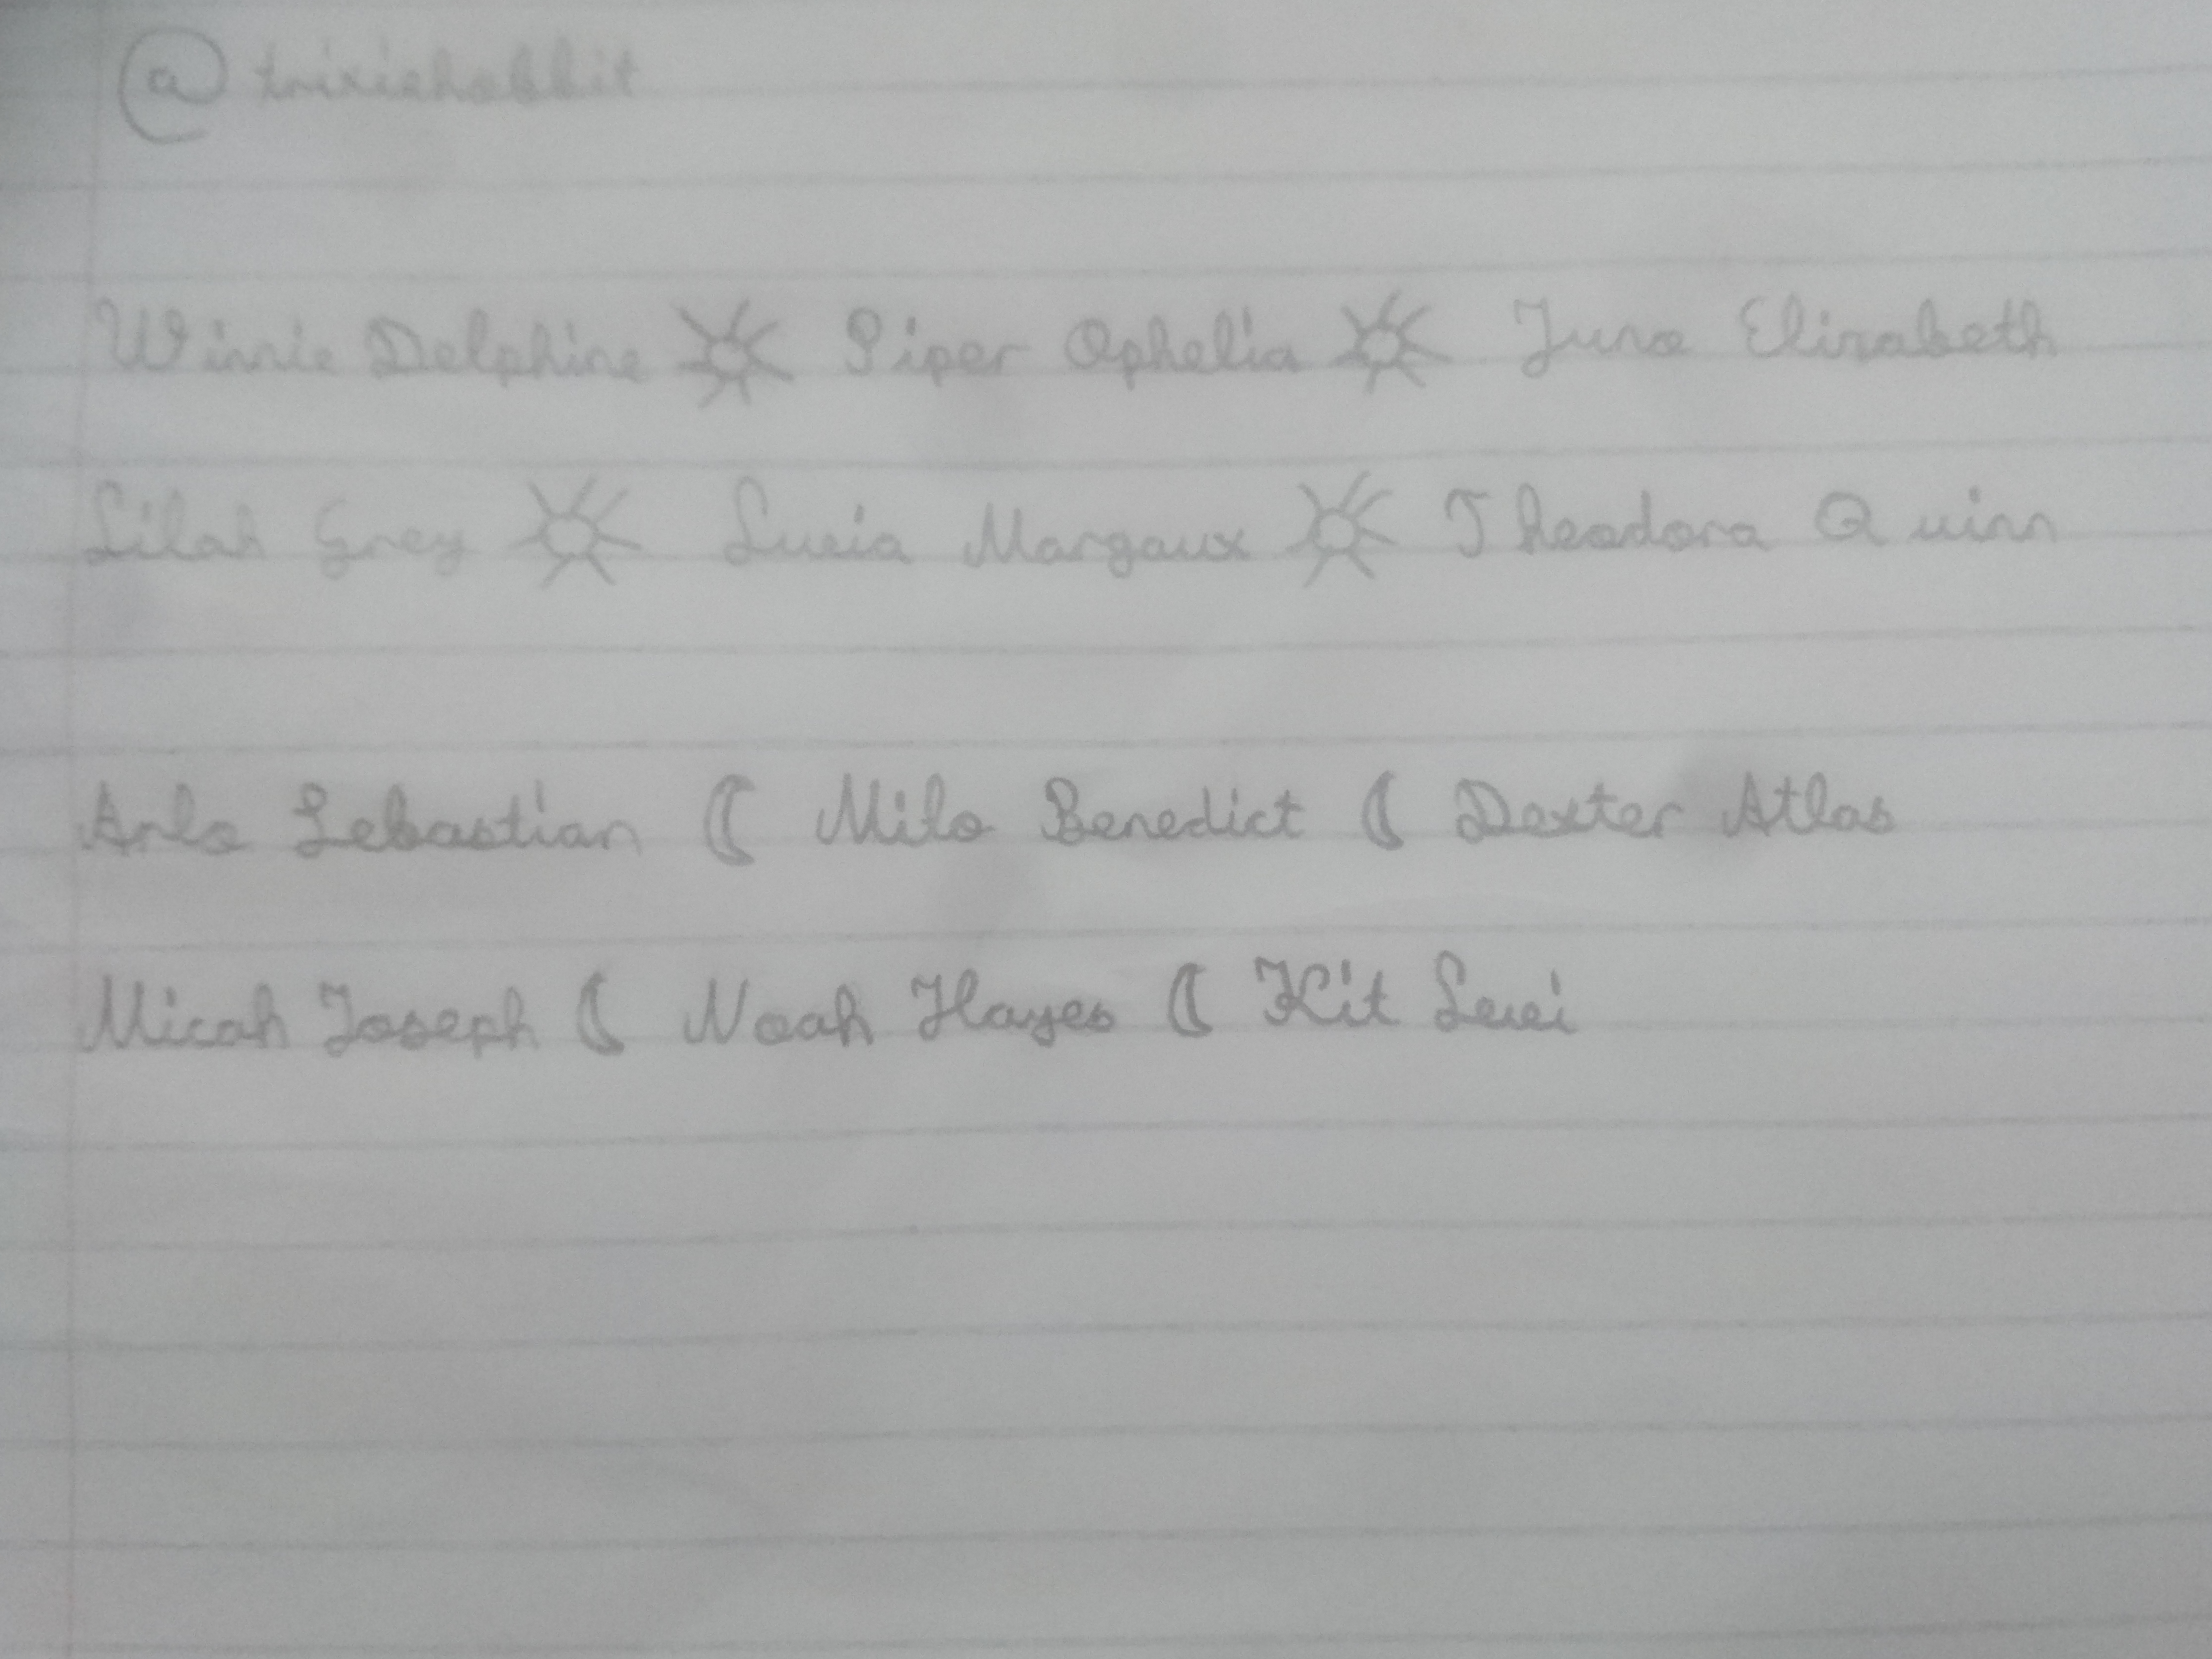 @trixiehobbit
Winnie Delphine ☼ Piper Ophelia ☼ Juno Elizabeth
Lilah Grey ☼ Lucia Margaux ☼ Theodora Quinn
Arlo Sebastian ☾ Milo Benedict ☾ Dexter Atlas
Micah Joseph ☾ Noah Hayes ☾ Kit Levi